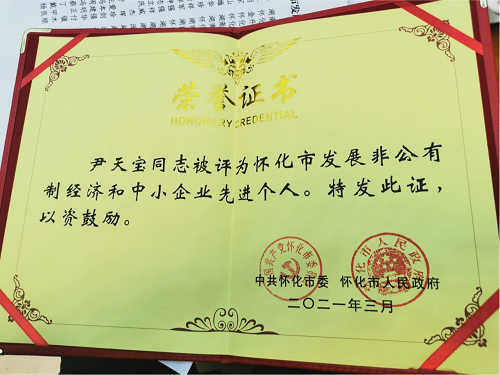 荣誉证书
HONORARY CREDENTIAL
尹天宝同志被评为怀化市发展非公有
制经济和中小企业先进个人。特发此证，
以资鼓励。
中共怀化市委 怀化市人民政府
二〇二一年三月